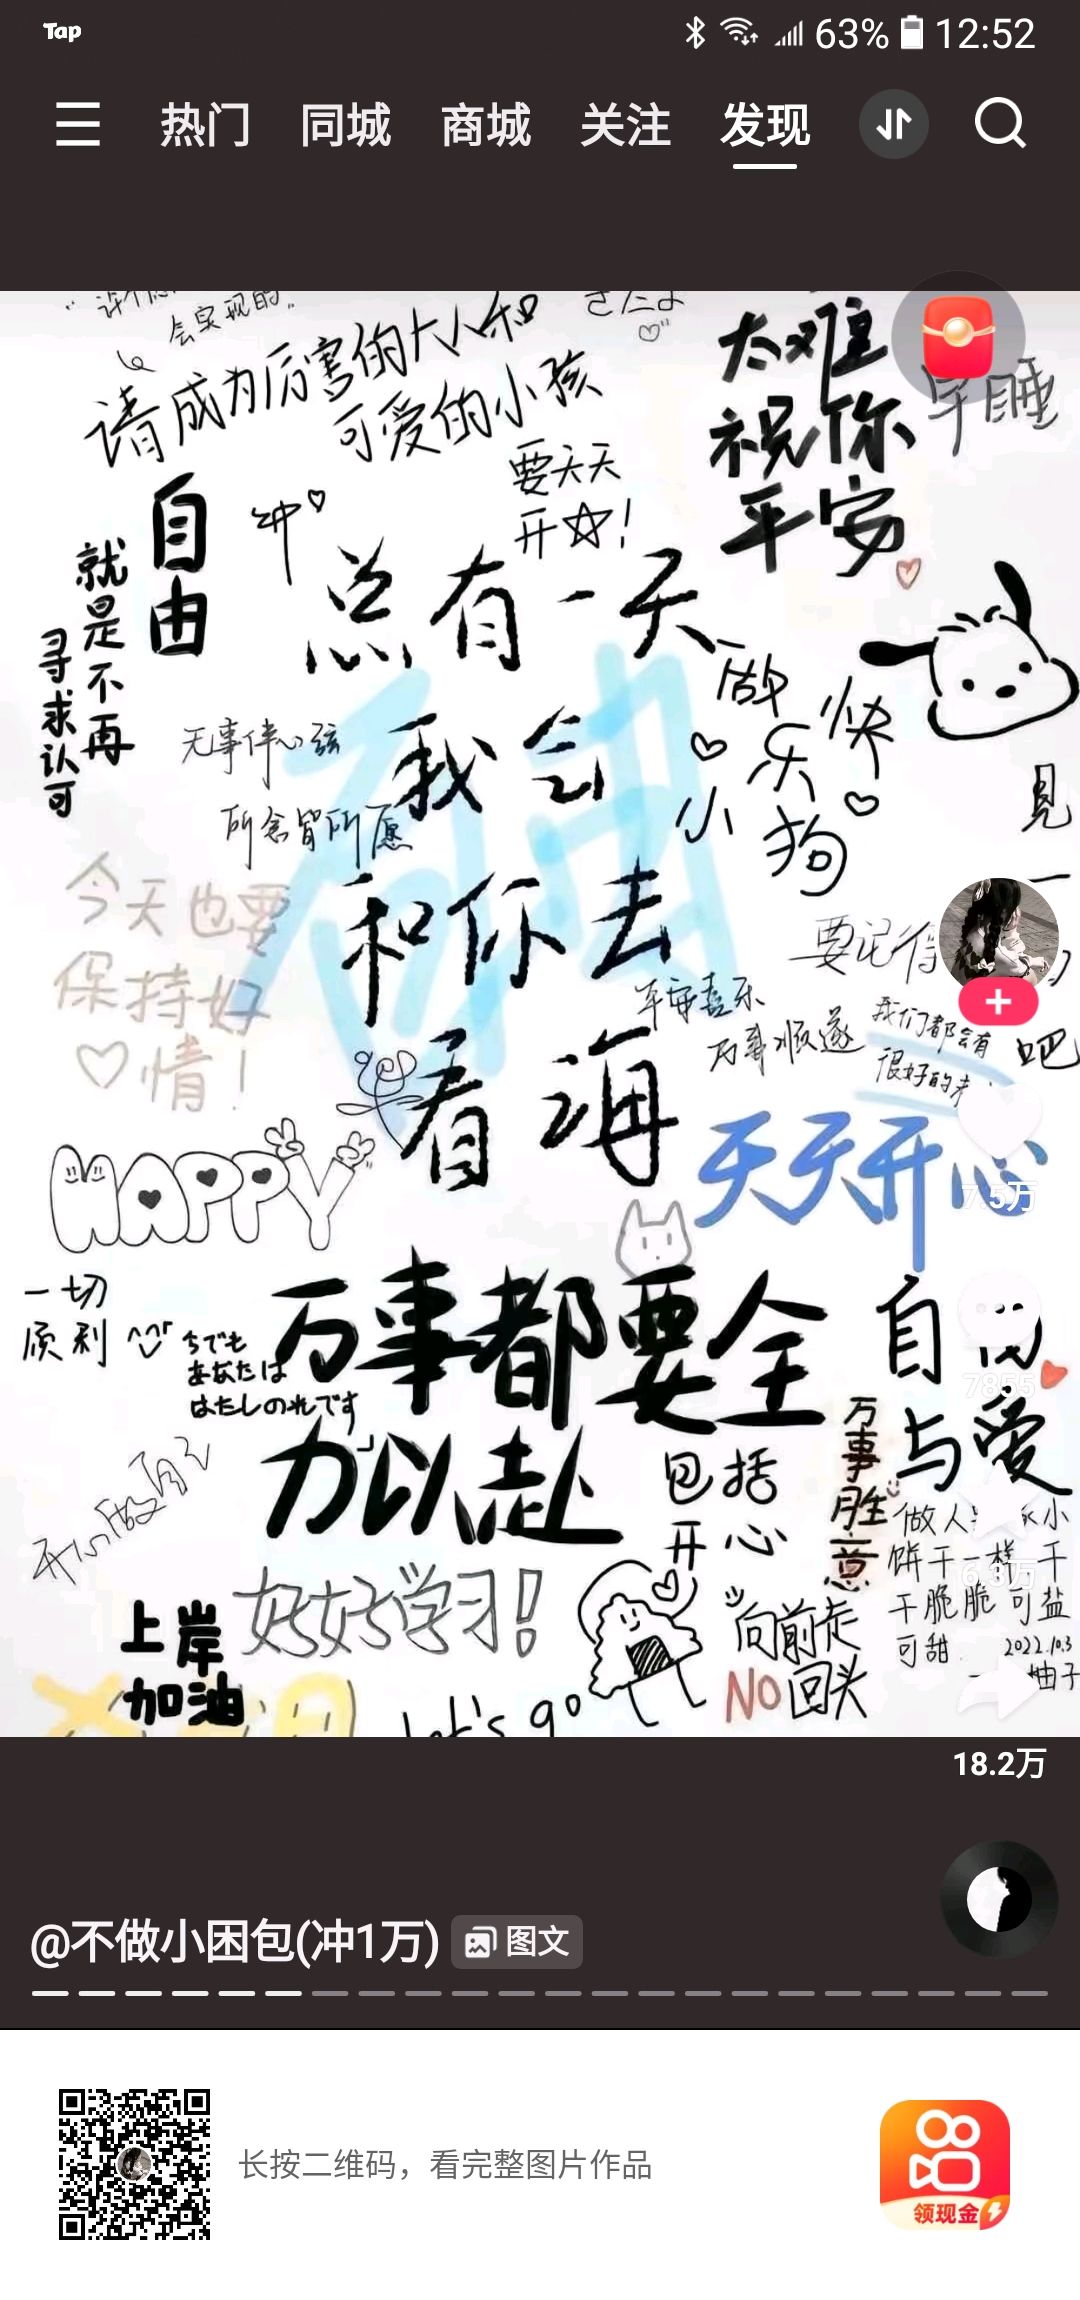 Tap
63% 12:52
热门 同城 商城 关注 发现
会实现的
请成为厉害的大人和
可爱的小孩
太难
祝你
平安
早睡
要天天
开☆!
自由
就是不再
寻求认可
冲♡
总有一天
我会
和你去
看海
做
快乐
小狗
无事伴心弦
所念皆所愿
今天也要
保持好
♡情!
见一
要记得
吧
平安喜乐
万事顺遂
我们都会有
很好的未
天天开心
7.5万
HAPPY
一切
顺利
あなたは
万事都要全
力以赴
包括
开心
自由
与爱
7855
万事胜意
做人
小
饼干一样 干
干脆脆 可盐
可甜
2022.10.3
柚子
6.3万
好好学习!
上岸
加油
"向前走
NO回头
Let's go
18.2万
@不做小困包(冲1万) 图文
长按二维码，看完整图片作品
领现金